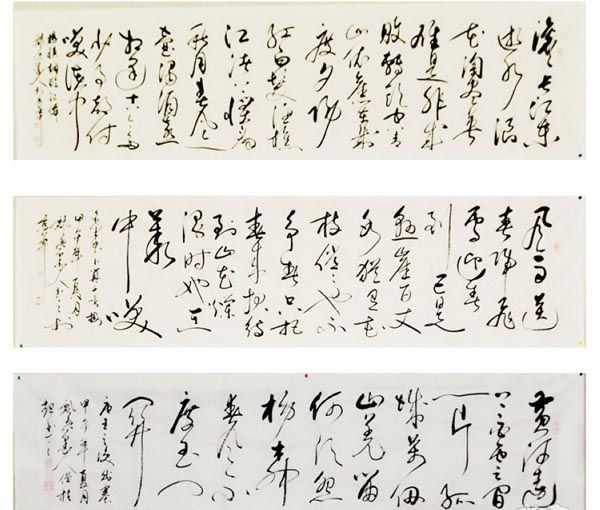 滚滚长江东
逝水浪
花淘尽英
雄是非成
败转头空青
山依旧在几
度夕阳
红白发渔樵
江渚上惯看
秋月春风一
壶浊酒喜
相逢古今多
少事都付
笑谈中
风雨送
春归飞
雪迎春
到已是
悬崖百丈
冰犹有花
枝俏俏也不
争春只把
春来报待
到山花烂
漫时她在
丛
中笑
甲午年夏月
黄河远
上白云间
一片孤
城万仞
山羌笛
何须怨
杨柳
春风不
度玉门
关
唐王之涣出塞
甲午年夏月